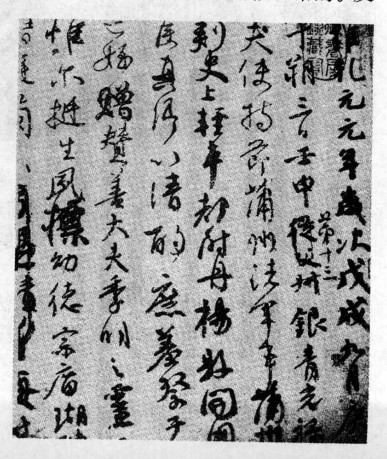 維乾元元年歲次戊戌九月庚
午朔三日壬申第十三從父叔銀青光祿
夫使持節蒲州諸軍事蒲州
刺史上輕車都尉丹楊縣開國
侯真卿以清酌庶羞祭于
亡姪贈贊善大夫季明之靈
惟爾挺生夙標幼德宗廟瑚